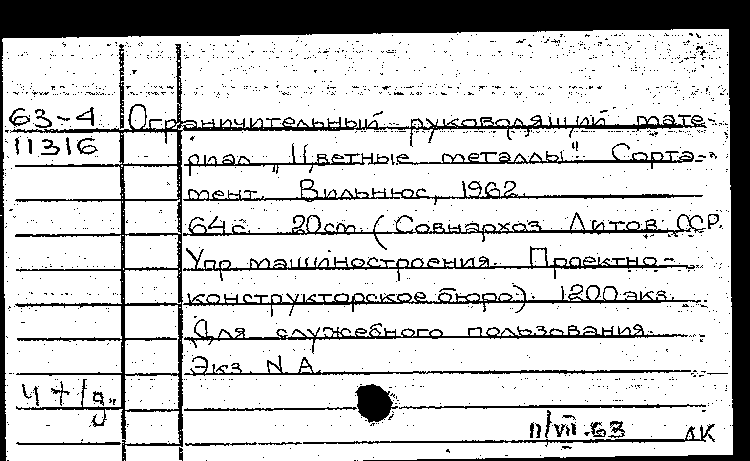 63-4 Ограничительный руководящий мате-
11316 риал „Цветные металлы". Сорта-
мент. Вильнюс, 1962.
64с. 20cm. (Совнархоз Литов. ССР.
Упр. машиностроения. Проектно-
конструкторское бюро). 1200 экз.
Для служебного пользования.
Экз. N А.
11/VII.63